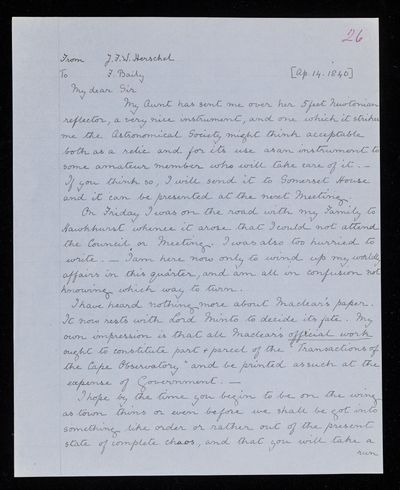 26
From J.F.W. Herschel
To F. Baily [Ap. 14. 1840]
My dear Sir
My Aunt has sent me over her 5 feet Newtonian
reflector, a very nice instrument, and one which it strikes
me the Astronomical Society might think acceptable
both as a relic and for its use as an instrument to
some amateur member who will take care of it. —
If you think so, I will send it to Somerset House
and it can be presented at the next Meeting.
On Friday I was on the road with my Family to
Hawkhurst whence it arose that I could not attend
the Council or Meeting. I was also too hurried to
write. — I am here now only to wind up my worldly
affairs in this quarter, and am all in confusion not
knowing which way to turn.
I have heard nothing more about Maclear's paper.
It now rests with Lord Minto to decide its fate. My
own impression is that all Maclear's official work
ought to constitute part & parcel of the "Transactions of
the Cape Observatory" and be printed as such at the
expense of Government. —
I hope by the time you begin to be on the wing
as town thins or even before we shall be got into
something like order or rather out of the present
state of complete chaos, and that you will take a
run